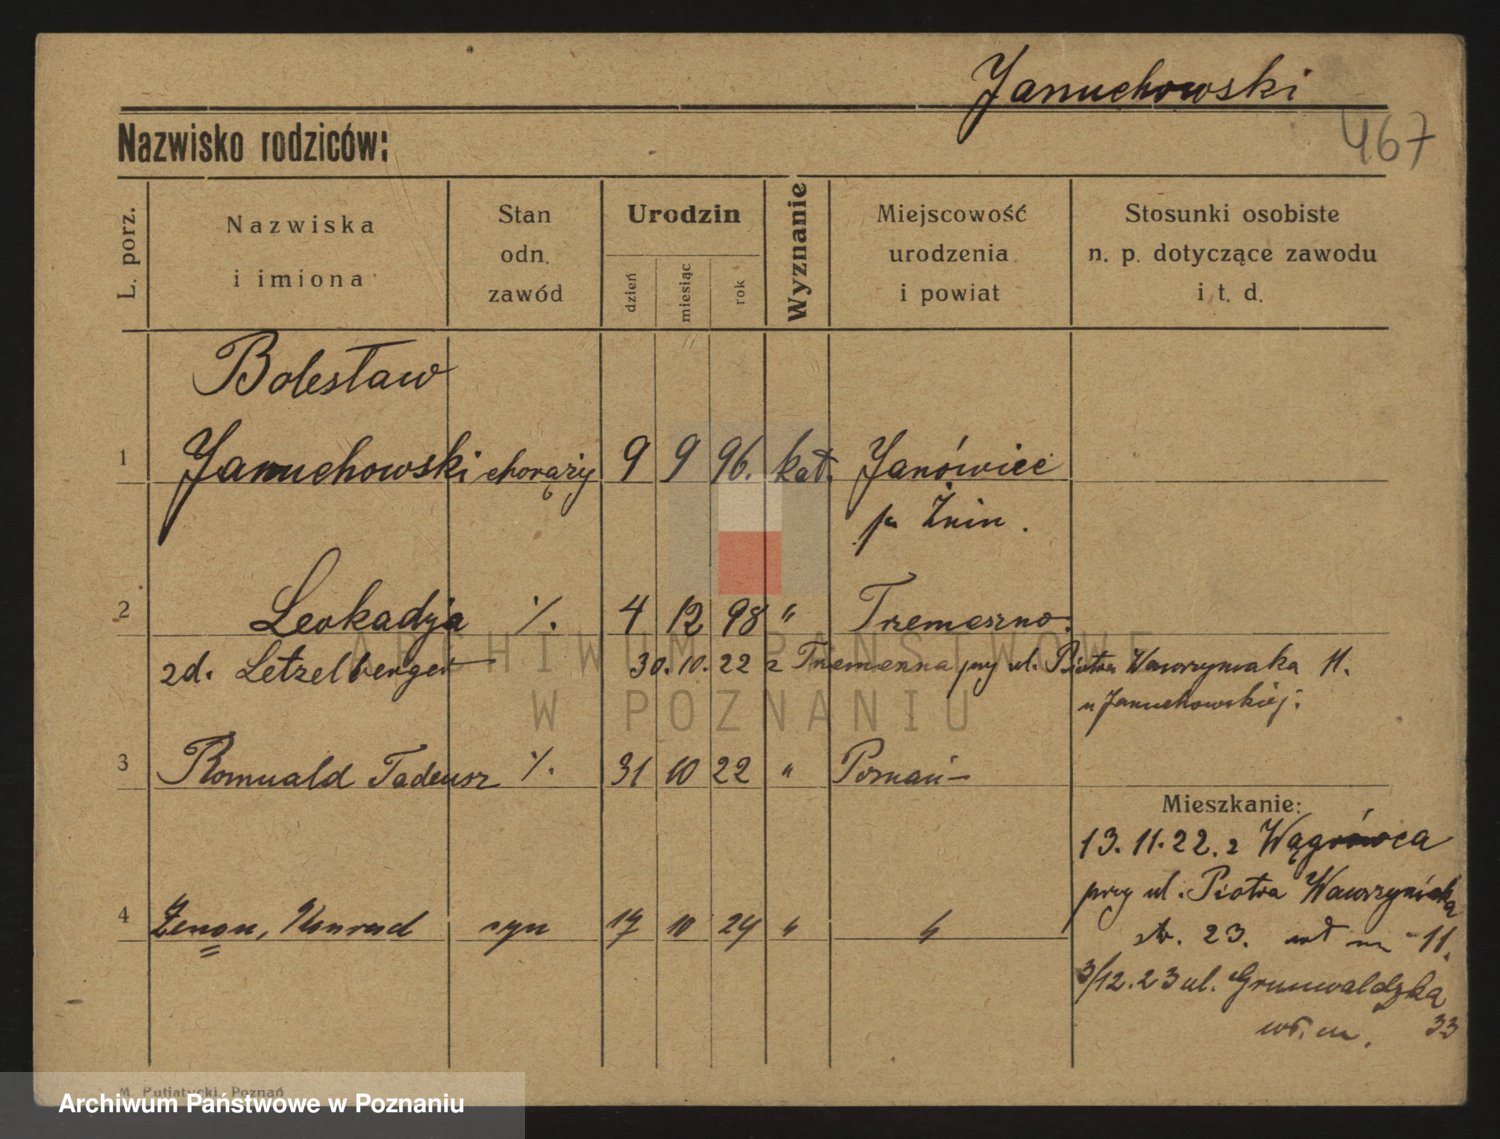 Januchowski
467
Nazwisko rodziców:
L. porz.
Nazwiska
i imiona
Stan
odn.
zawód
Urodzin
dzień
miesiąc
rok
Wyznanie
Miejscowość
urodzenia
i powiat
Stosunki osobiste
n. p. dotyczące zawodu
i t. d.
Bolesław
1 Januchowski chorąży 9 9 96. kat. Janówiec
p. Żnin.
2 Leokadja ٪. 4 12 98 " Trzemeszno.
zd. Letzelberger 30.10.22 z Trzemeszna przy ul. Piotra Wawrzyniaka 11.
u Januchowskiej;
3 Romuald Tadeusz ٪. 31 10 22 " Poznań
Mieszkanie:
13.11.22. z Wągrówca
przy ul. Piotra Wawrzyniaka
4 Zenon, Konrad syn 17 10 24 " "
str. 23. wł m 11.
3/12.23 ul. Grunwaldzka
33
wł. m.
ARCHIWUM PAŃSTWOWE
W POZNANIU
M. Putiatycki, Poznań
Archiwum Państwowe w Poznaniu